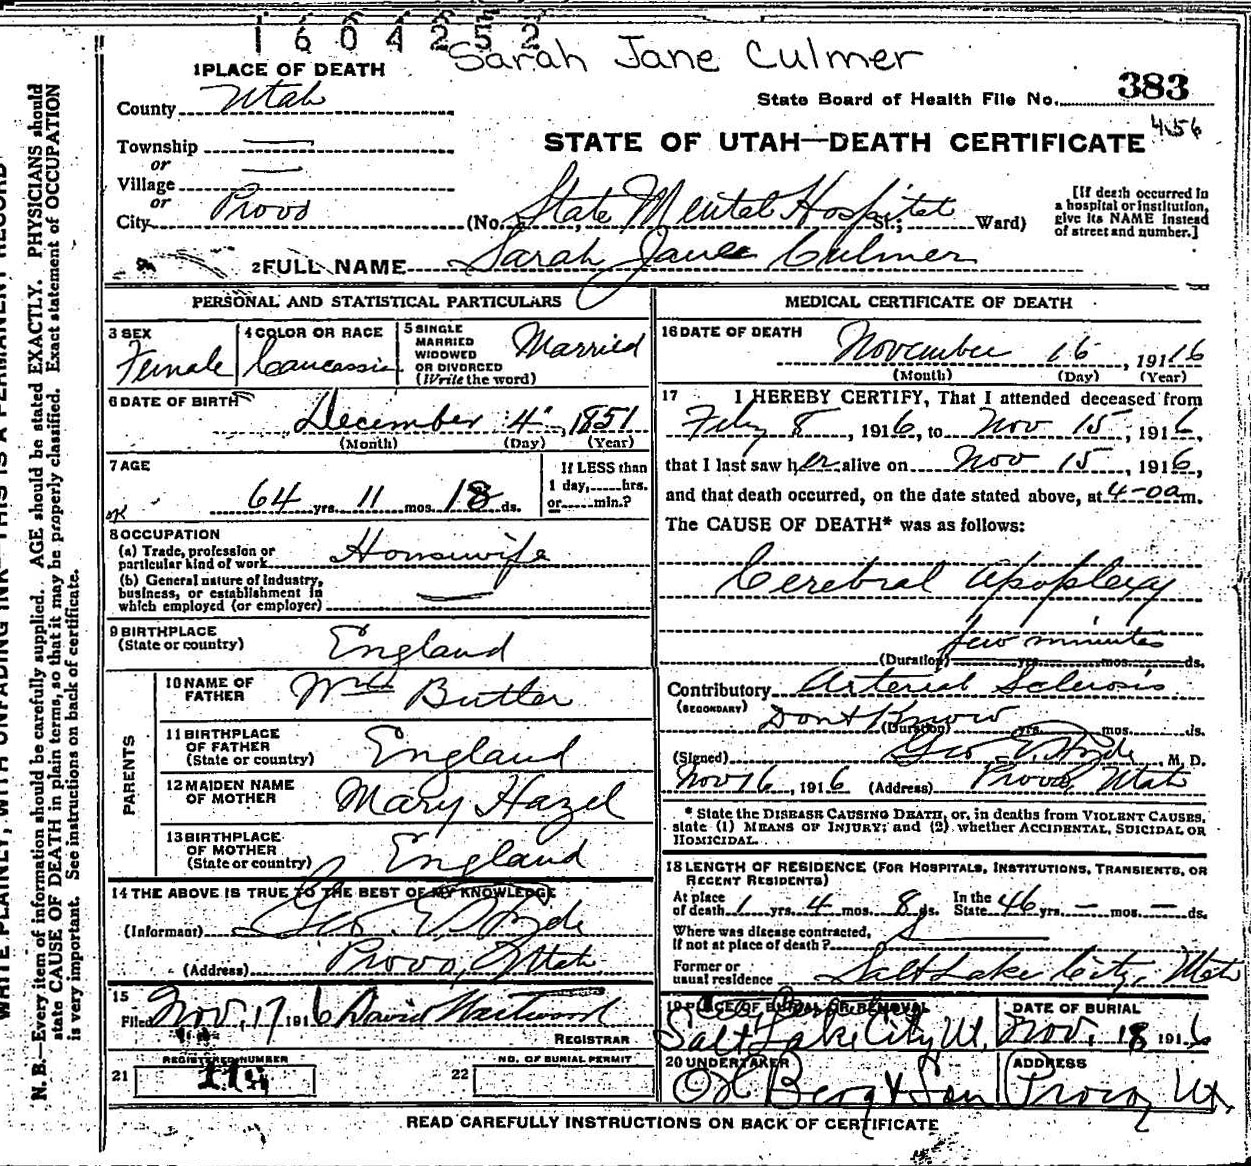 1604252
Sarah Jane Culmer
1 PLACE OF DEATH
County Utah
State Board of Health File No. 383
456
STATE OF UTAH—DEATH CERTIFICATE
Township —
or
Village —
or
City Provo (No. State Mental Hospital St.; Ward)
[If death occurred in a hospital or institution, give its NAME instead of street and number.]
2 FULL NAME Sarah Jane Culmer
PERSONAL AND STATISTICAL PARTICULARS
3 SEX
Female
4 COLOR OR RACE
Caucassian
5 SINGLE
MARRIED
WIDOWED
OR DIVORCED
(Write the word)
Married
6 DATE OF BIRTH
December 4, 1851
(Month) (Day) (Year)
7 AGE
64 yrs. 11 mos. 18 ds.
If LESS than
1 day, hrs.
or min.?
OK
8 OCCUPATION
(a) Trade, profession or
particular kind of work Housewife
(b) General nature of industry,
business, or establishment in
which employed (or employer) —
9 BIRTHPLACE
(State or country) England
PARENTS
10 NAME OF
FATHER Wm Butler
11 BIRTHPLACE
OF FATHER
(State or country) England
12 MAIDEN NAME
OF MOTHER Mary Hazel
13 BIRTHPLACE
OF MOTHER
(State or country) England
14 THE ABOVE IS TRUE TO THE BEST OF MY KNOWLEDGE
(Informant) Geo. E. Hyde
(Address) Provo, Utah
15
Filed Nov, 17 1916 David Westwood
REGISTRAR
REGISTERED NUMBER
21
NO. OF BURIAL PERMIT
22
MEDICAL CERTIFICATE OF DEATH
16 DATE OF DEATH
November 16, 19116
(Month) (Day) (Year)
17 I HEREBY CERTIFY, That I attended deceased from
Feby 8, 1916, to Nov 15, 1916,
that I last saw her alive on Nov 15, 1916,
and that death occurred, on the date stated above, at 4-00 a m.
The CAUSE OF DEATH* was as follows:
Cerebral apoplexy
few minutes
(Duration) yrs. mos. ds.
Contributory Arterial Sclerosis
(SECONDARY)
Dont Know
(Duration) yrs. mos. ds.
(Signed) Geo E. Hyde M. D.
Nov 16, 1916 (Address) Provo, Utah
* State the DISEASE CAUSING DEATH, or, in deaths from VIOLENT CAUSES,
state (1) MEANS OF INJURY; and (2) whether ACCIDENTAL, SUICIDAL OR
HOMICIDAL.
18 LENGTH OF RESIDENCE (FOR HOSPITALS, INSTITUTIONS, TRANSIENTS, OR
RECENT RESIDENTS)
At place
of death 1 yrs. 4 mos. 8 ds. In the State 46 yrs. — mos. — ds.
Where was disease contracted,
if not at place of death?
Former or
usual residence Salt Lake City, Utah
19 PLACE OF BURIAL OR REMOVAL
Salt Lake City Ut.
DATE OF BURIAL
Nov. 18 1916
20 UNDERTAKER
O H Berg & Son
ADDRESS
Provo, Ut.
READ CAREFULLY INSTRUCTIONS ON BACK OF CERTIFICATE
WRITE PLAINLY, WITH UNFADING INK—THIS IS A PERMANENT RECORD
N. B.—Every item of information should be carefully supplied. AGE should be stated EXACTLY. PHYSICIANS should
state CAUSE OF DEATH in plain terms, so that it may be properly classified. Exact statement of OCCUPATION
is very important. See instructions on back of certificate.